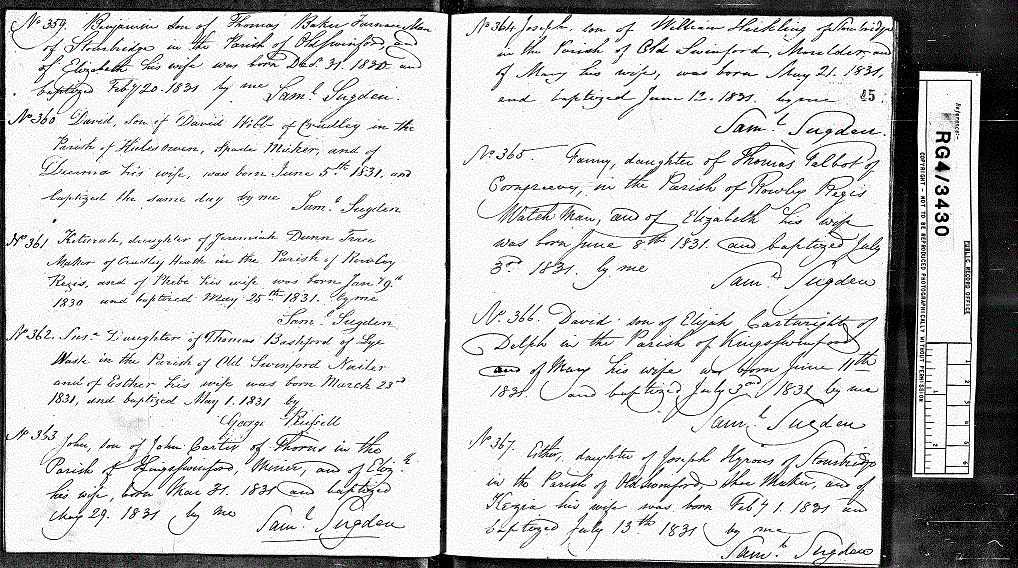 No 359. Benjamin son of Thomas Baker Furnace Man
of Stourbridge in the Parish of Oldswinford and
of Elizabeth his wife was born Decr 31. 1830 and
baptized Feby 20. 1831 by me
Saml Sugden.
No 360 David, son of David Webb of Cradley in the
Parish of Hales Owen, Spade Maker, and of
his wife, was born June 5th 1831, and
baptized the same day by me
Saml Sugden
No 361 Keturah, daughter of Jeremiah Dunn
Maker of Cradley Heath in the Parish of Rowley
Regis, and of Phebe his wife was born Jany 9th
1830 and baptized May 25th 1831. by me
Saml Sugden
No 362. Daughter of Thomas Bashford of Lye
Waste in the Parish of Old Swinford Nailer
and of Esther his wife was born March 23rd
1831, and baptized May 1. 1831 by
George Russell
No 363 John, son of John Carter of Thorns in the
Parish of Kingswinford, Miner, and of Elizth
his wife, born Mar 31. 1831 and baptized
May 29. 1831 by me
Saml Sugden
No 364. Joseph, son of William Hickling of Stourbridge
in the Parish of Old Swinford, Moulder, and
of Mary his wife, was born May 21. 1831.
and baptized June 12. 1831. by me
45
Saml Sugden.
No 365. Fanny, daughter of Thomas Talbot of
Congreaves, in the Parish of Rowley Regis
Watch Man, and of Elizabeth his wife
was born June 8th 1831. and baptized July
3rd 1831. by me
Saml Sugden
No 366. David son of Elijah Cartwright of
Delph in the Parish of Kingswinford
and of Mary his wife was born June 11th
1831. and baptized July 3rd 1831 by me
Saml Sugden
No 367. Esther, daughter of Joseph Hyrons of Stourbridge
in the Parish of Oldswinford, Shoe Maker, and of
Kezia his wife was born Feby 1. 1831 an
baptized July 13th 1831 by me
Saml Sugden
Reference:-
RG4/3430
PUBLIC RECORD OFFICE
COPYRIGHT - NOT TO BE REPRODUCED PHOTOGRAPHICALLY WITHOUT PERMISSION